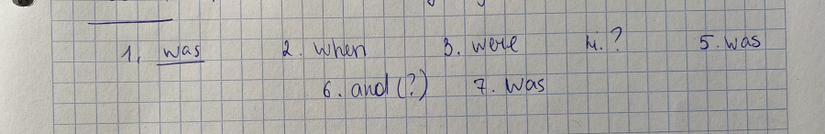 1. was 2. when 3. were 4. ? 5. was
6. and (?) 7. was